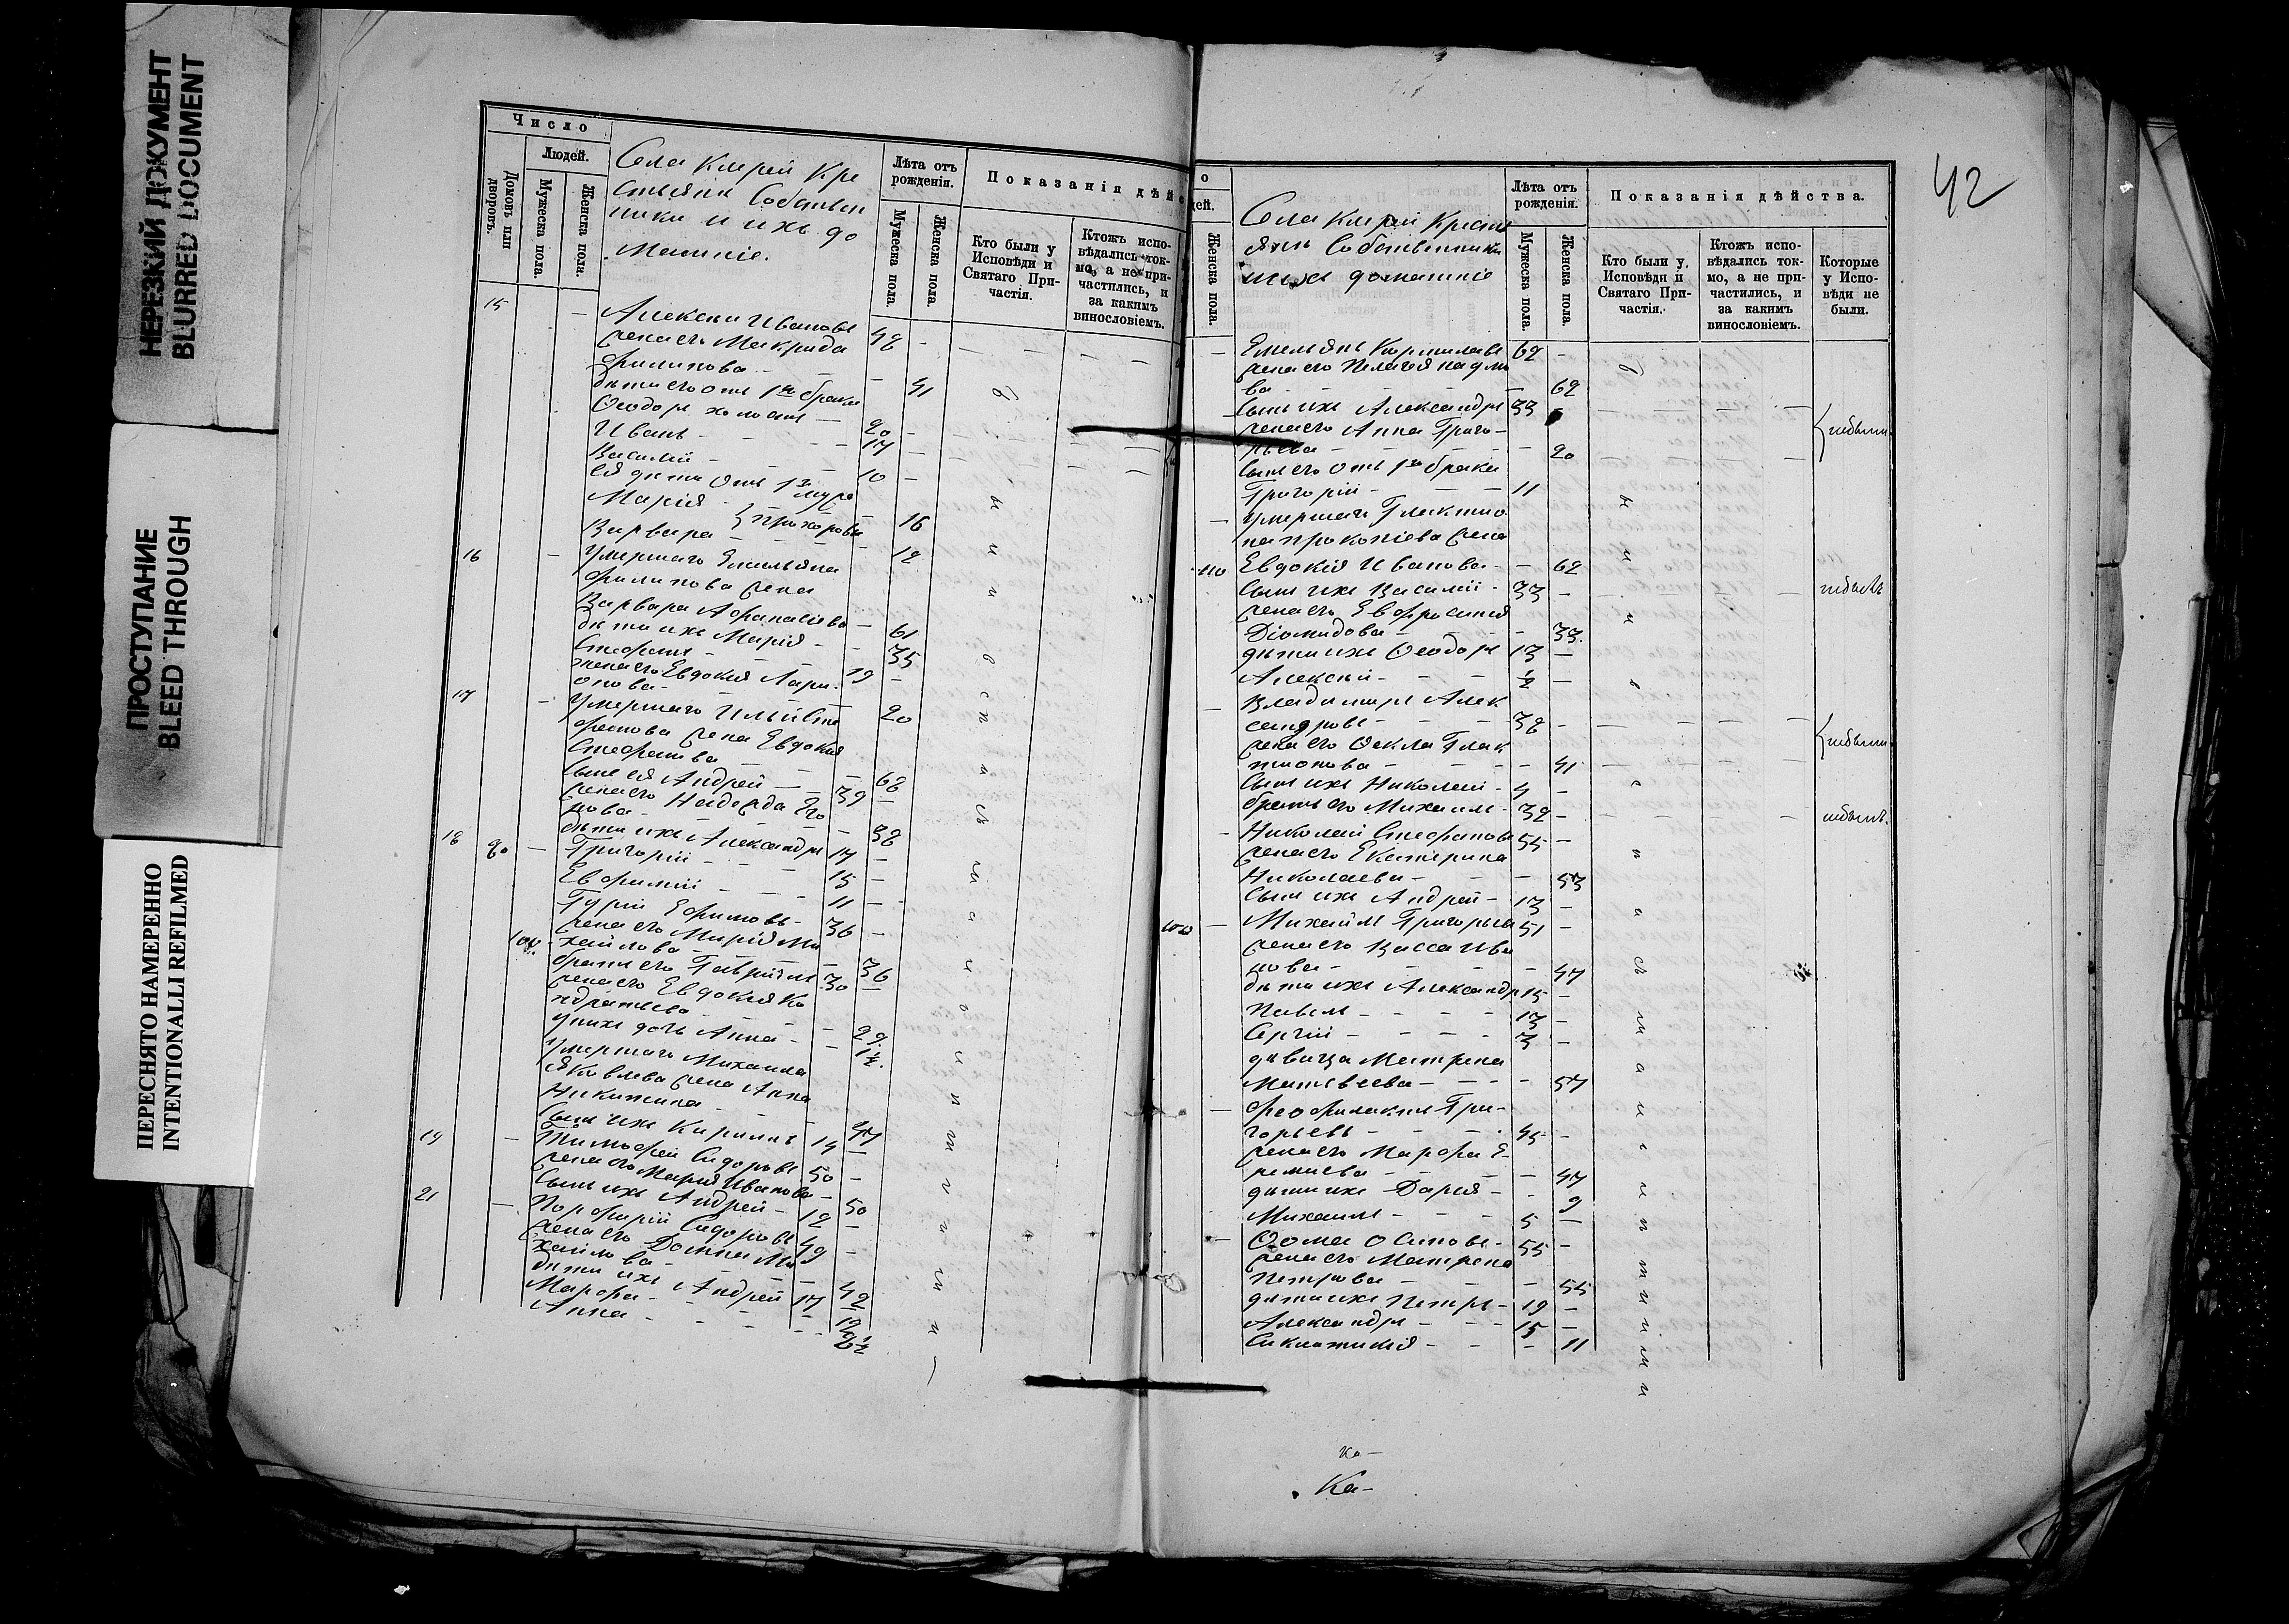 НЕРЕЗКИЙ ДОКУМЕНТ
BLURRED DOCUMENT
ПРОСТУПАНИЕ
BLEED THROUGH
ПЕРЕСНЯТО НАМЕРЕННО
INTENTIONALLI REFILMED
Число
Людей.
Домовъ или дворовъ.
Мужеска пола.
Женска пола.
Села Кмрей Кре
стьяни Собствен
ники и ихъ до
машніе.
Лѣта отъ рожденія.
Мужеска пола.
Женска пола.
Показанія дѣйс
Кто были у Исповѣди и Святаго Причастія.
Ктожъ исповѣдались токмо, а не причастились, и за какимъ винословіемъ.
15 Алексѣй Ивановъ 48
жена его Макрида
Филипова 41
дѣти его отъ 1го брака
Ѳеодоръ холостъ 20
Иванъ 17
Василій 10
Ея дѣти отъ 1го мужа
Марія 16
Прохоровы
Варвара 12
16 Умершаго Емельяна
Филипова жена
Варвара Афанасіева 61
дѣти ихъ Марія 35
Стефанъ 19
жена его Евдокія Лари-
онова 20
17 Умершаго Ильи Сте
фанова жена Евдокія
Стефанова 68
Сынъ ея Андрей 39
жена его Надежда Его
рова 38
дѣти ихъ Александръ 17
18 80 Григорій 15
Евфимій 11
Гурій Ефимовъ 36
жена его Марія Ми
хайлова 36
братъ его Гавріилъ 30
жена его Евдокія Ко
ндратьева 29
у нихъ дочь Анна 1½
Умершаго Михаила
Яковлева жена Анна
Никитина 47
Сынъ ихъ Кирилъ 14
19 Тимофей Сидоровъ 50
жена его Марія Иванова 50
Сынъ ихъ Андрей 12
21 Порфирій Сидоровъ 49
жена его Домна Ми
хайлова 42
дѣти ихъ Андрей 17
Марфа 12
Анна 2½
42
о
дей.
Женска пола.
Села Кмрей Крестья
янъ Собственники
и ихъ домашніе
Лѣта отъ рожденія.
Мужеска пола.
Женска пола.
Показанія дѣйства.
Кто были у Исповѣди и Святаго Причастія.
Ктожъ исповѣдались токмо, а не причастились, и за какимъ винословіемъ.
Которые у Исповѣди не были.
Емельянъ Кирилавъ 62
жена его Пелагея
ва 62
Сынъ ихъ Александръ 33
небыли
жена его Анна Григо-
рьева 20
Сынъ его отъ 1го брака
Григорій 11
Умершаго Галактіо
на Прокопіева жена
110 Евдокія Иванова 62
Сынъ ихъ Василій 33 небылъ
жена его Евфросинія
Діомидова 33
дѣти ихъ Ѳеодоръ 13
Алексѣй ½
Владиміръ Алек
сандровъ 38
небыли
жена его Ѳекла Галак
тіонова 41
Сынъ ихъ Николай 4
братъ его Михаилъ 32 небылъ.
Николай Стефановъ 55
жена его Екатерина
Николаева 53
Сынъ ихъ Андрей 13
100 Михаилъ Григорьевъ 51
жена его Васса Ива
нова 47
дѣти ихъ Александръ 15
Павелъ 13
Сергій 3
дѣвица Матрена
Матвѣева 57
Феофилактъ Гри-
горьевъ 45
жена его Марфа Е-
ремѣева 47
дѣти ихъ Дарія 9
Михаилъ 5
Ѳома Осиповъ 55
жена его Матрена
Петрова 55
дѣти ихъ Петръ 19
Александръ 15
Синклитикія 11
ка-
Ка-